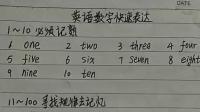 DATE
英语数字快速表达
1~10 必须记熟
1 one 2 two 3 three 4 four
5 five 6 six 7 seven 8 eight
9 nine 10 ten
11~100 寻找规律去记忆